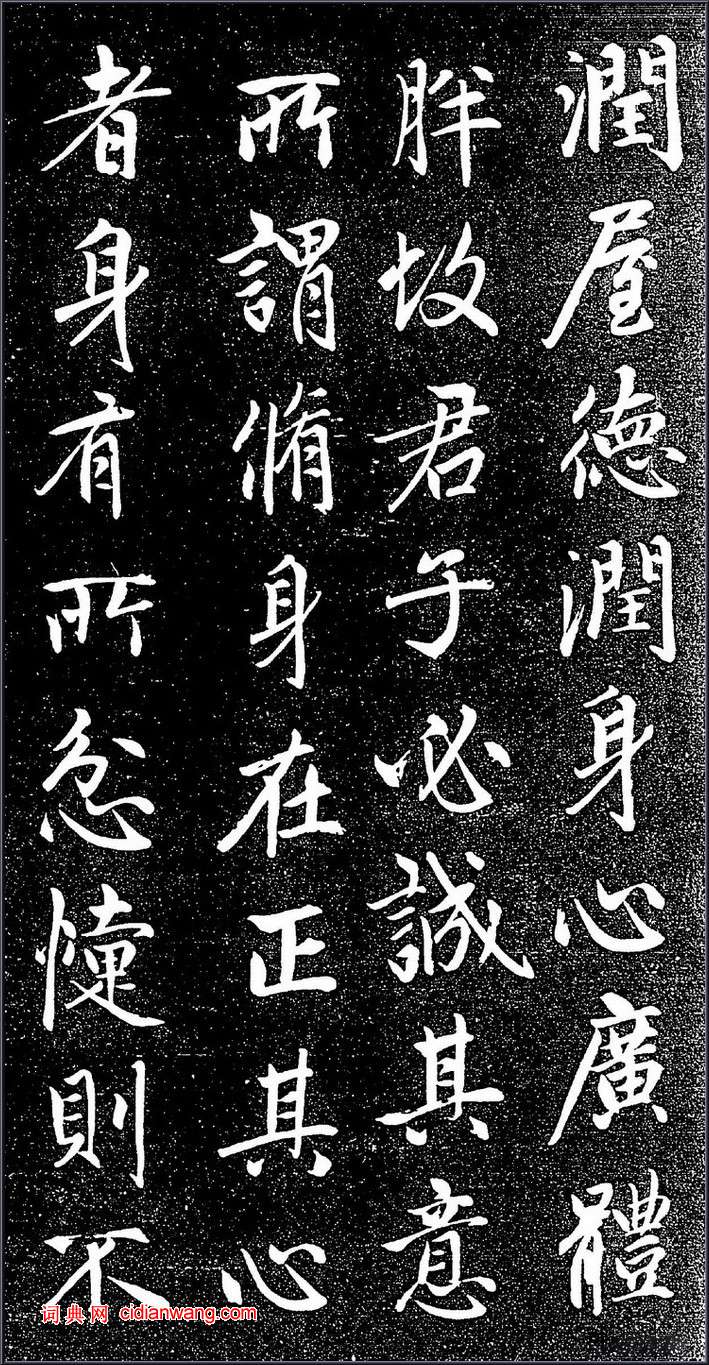 潤屋德潤身心廣體
胖故君子必誠其意
所謂脩身在正其心
者身有所忿懥則不
词典网 cidianwang.com